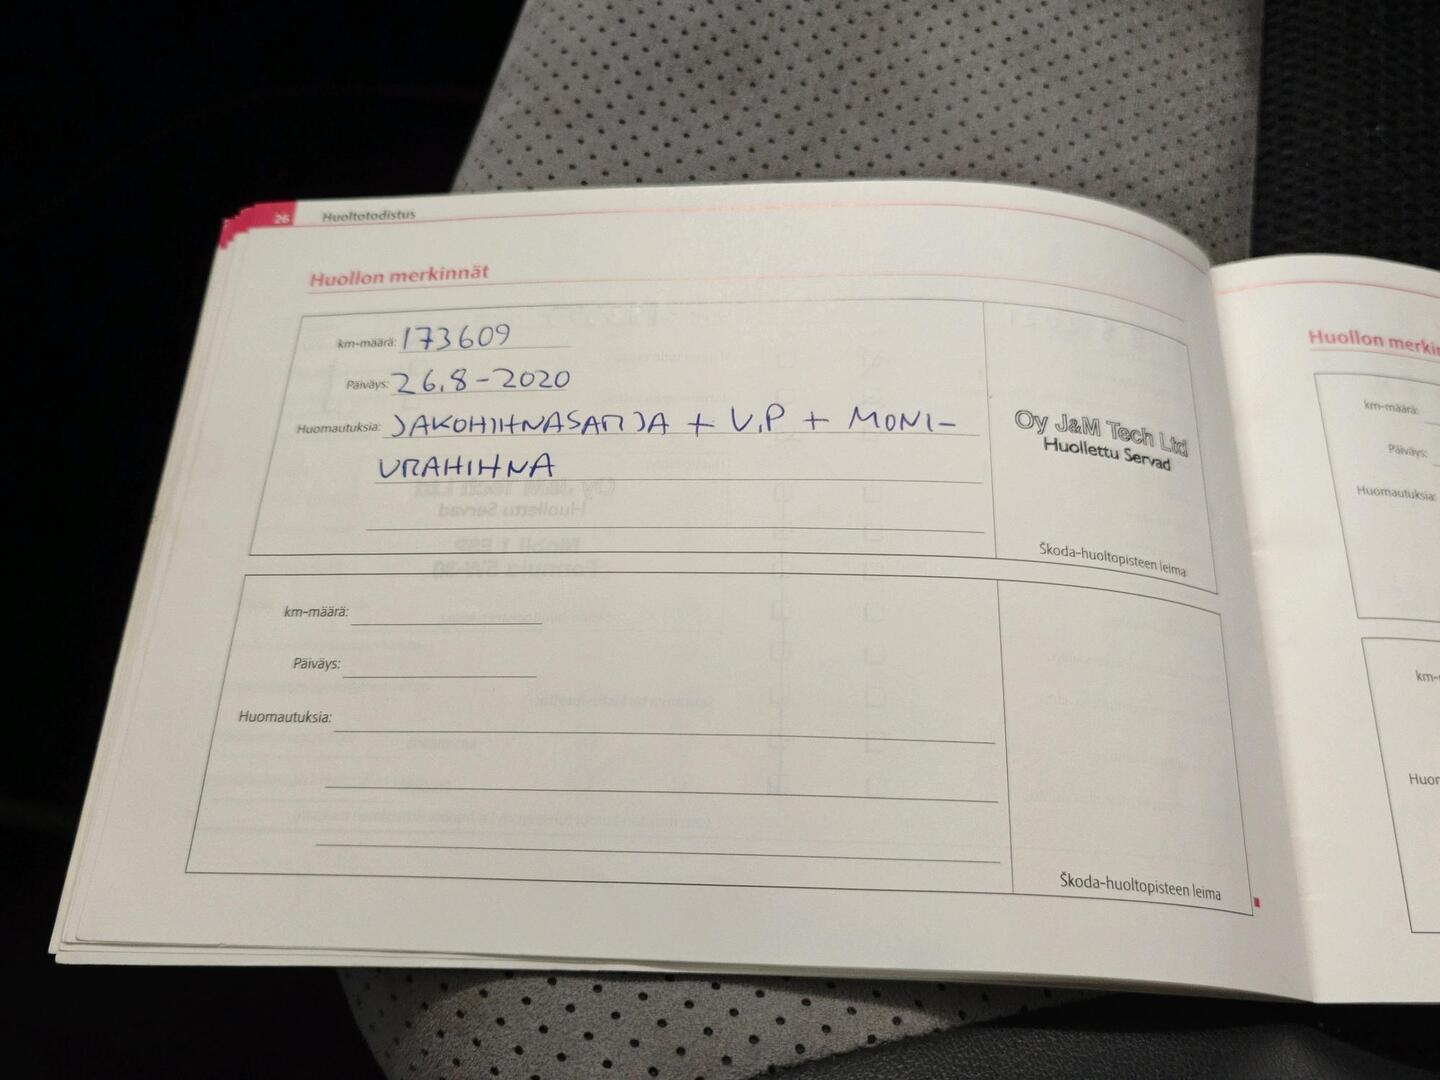 26 Huoltotodistus
Huollon merkinnät
km-määrä: 173609
Päiväys: 26.8-2020
Huomautuksia: JAKOHIHNASARJA + V.P + MONI-
URAHIHNA
Oy J&M Tech Ltd
Huollettu Servad
Škoda-huoltopisteen leima
km-määrä:
Päiväys:
Huomautuksia:
Škoda-huoltopisteen leima
Huollon merkin
km-määrä:
Päiväys:
Huomautuksia:
km-
Huor